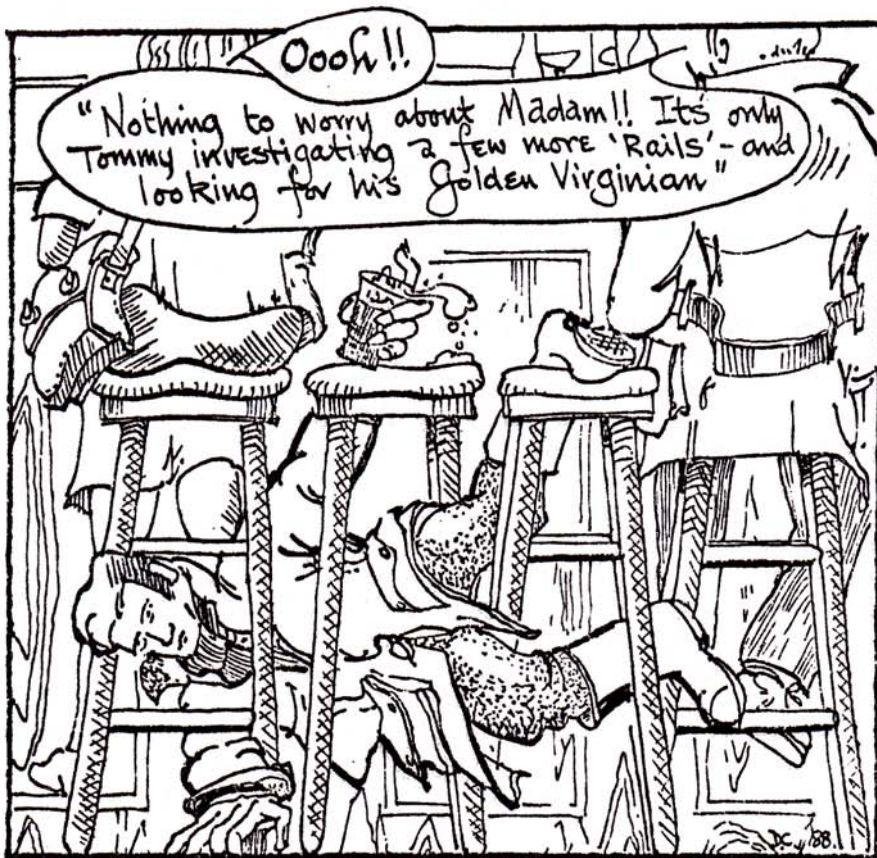 Oooh!!
"Nothing to worry about Madam!! It's only
Tommy investigating a few more 'Rails' - and
looking for his Golden Virginian"
D.C. '88.